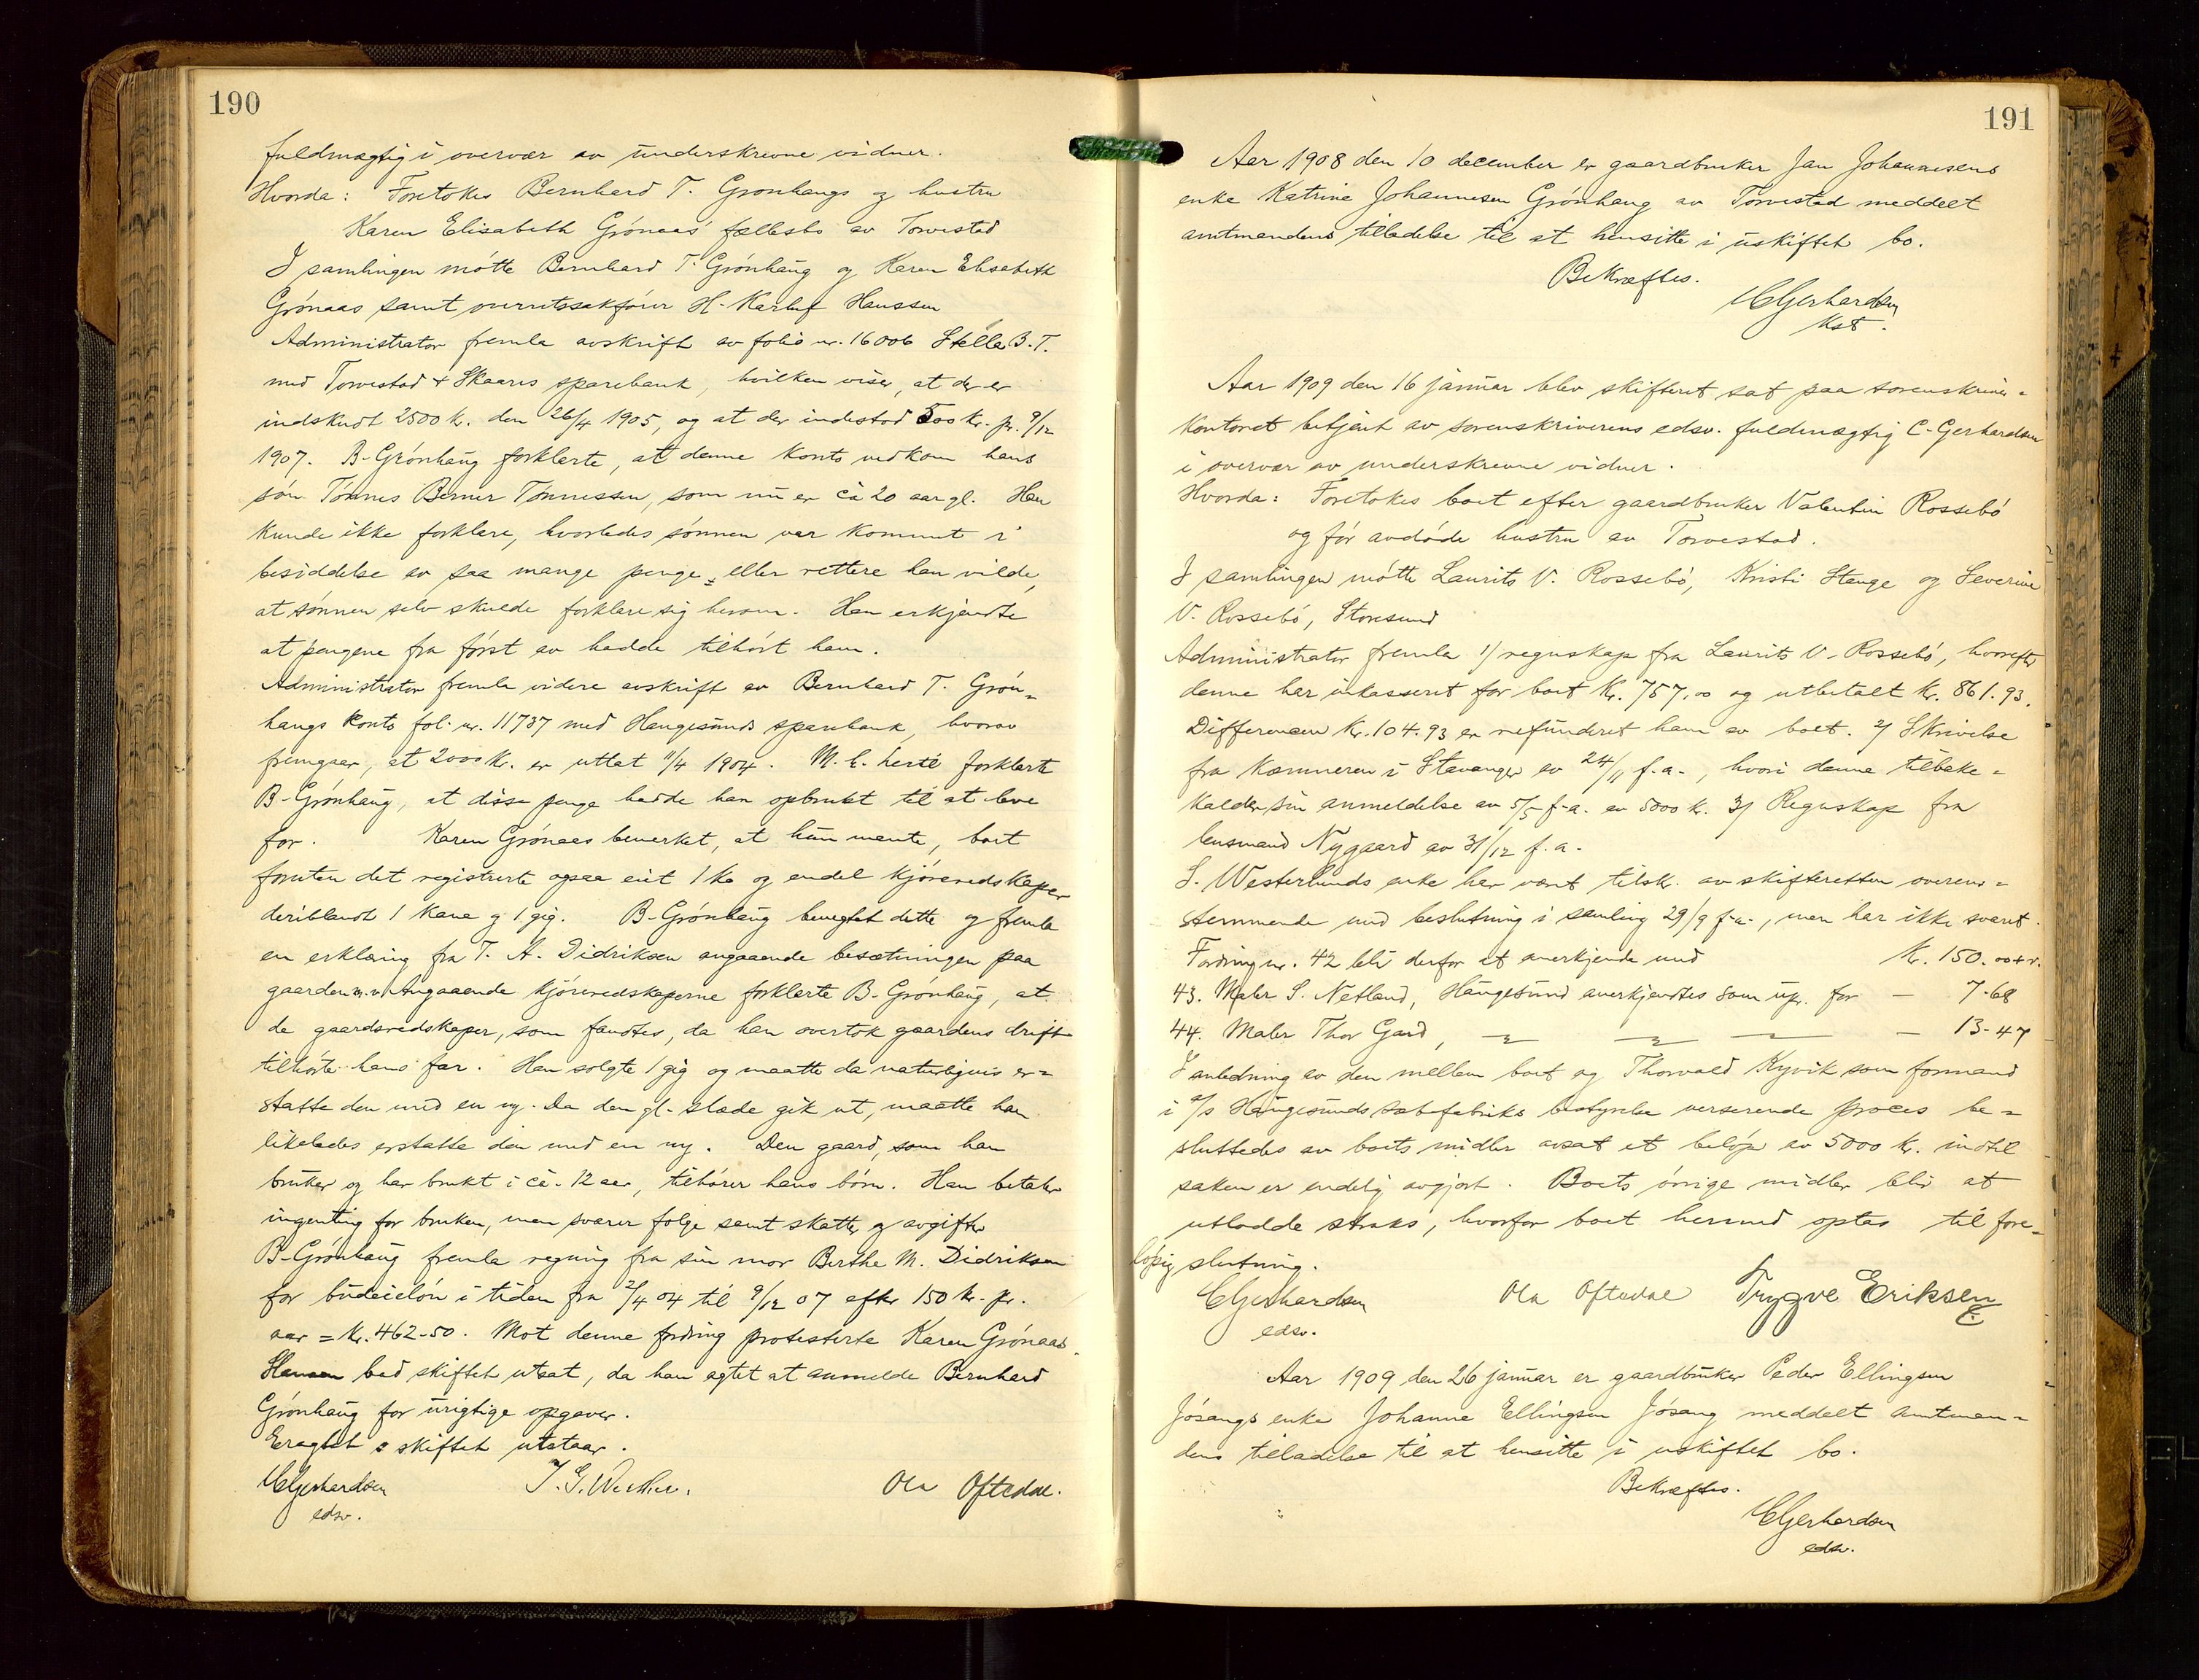 190
fuldmægtig i overvær av underskrevne vidner.
Hvorda: Foretokes Bernhard T. Grønhaugs og hustru
Karen Elisabeth Grønaas' fællesbo av Torvestad
I samlingen møtte Bernhard T. Grønhaug og Karen Elisabeth
Grønaas samt overretssakfører H. Karluf Hanssen
Administrator fremla avskrift av folio nr. 16006 Stella B. T.
med Torvestad & Skaares sparebank, hvilken viser, at der er
indskudt 2500 kr. den 26/4 1905, og at der indestod 500 kr. pr. 9/12
1907. B. Grønhaug forklarte, at denne konto vedkom hans
søn Tønnes Berner Tønnessen, som nu er ca 20 aar gl. Han
kunde ikke forklare, hvorledes sønnen var kommet i
besiddelse av saa mange penge, eller rettere han vilde,
at sønnen selv skulde forklare sig herom. Han erkjendte
at pengene fra først av hadde tilhørt ham.
Administrator fremla videre avskrift av Bernhard T. Grøn=
haugs konto fol. nr. 11737 med Haugesunds sparebank, hvorav
fremgaar, at 2000 kr. er uttat 11/4 1904. M. h. hertil forklarte
B. Grønhaug, at disse penge hadde han opbrukt til at leve
for. Karen Grønaas bemerket, at hun mente, boet
foruten det registrerte ogsaa eiet 1 ko og endel kjøreredskaper
deriblandt 1 kane og 1 gig. B. Grønhaug benegtet dette og fremla
en erklæring fra T. A. Didriksen angaaende besætningen paa
gaarden m. v. Angaaende kjøreredskaperne forklarte B. Grønhaug, at
de gaardsredskaper, som fandtes, da han overtok gaardens drift
tilhørte hans far. Han solgte 1 gig og maatte da naturligvis er=
statte den med en ny. Da den gl. slæde gik ut, maatte han
likeledes erstatte den med en ny. Den gaard, som han
bruker og har brukt i ca. 12 aar, tilhører hans børn. Han betaler
ingenting for bruken, men svarer følge samt skatter og avgifter
B. Grønhaug fremla regning fra sin mor Berthe M. Didriksen
for budeieløn i tiden fra 2/4 04 til 9/12 07 efter 150 kr. pr.
aar = kr. 462.50. Mot denne fordring protesterte Karen Grønaas.
Hanssen bad skiftet utsat, da han agtet at anmelde Bernhard
Grønhaug for urigtige opgaver.
Eragtet: skiftet utstaar.
CGerhardsen T. G. Ola Oftedal.
edsv.
191
Aar 1908 den 10 december er gaardbruker Jan Johannesens
enke Katrine Johannesen Grønhaug av Torvestad meddelt
amtmandens tilladelse til at hensitte i uskiftet bo.
Bekræftes.
CGerhardsen
kst.
Aar 1909 den 16 januar blev skifteret sat paa sorenskriver=
kontoret betjent av sorenskriverens edsv. fuldmægtig C. Gerhardsen
i overvær av underskrevne vidner.
Hvorda: Foretokes boet efter gaardbruker Valentin Rossebø
og før avdøde hustru av Torvestad.
I samlingen møtte Laurits V. Rossebø, Kristi Stange og Severine
V. Rossebø, Storesund
Administrator fremla 1/ regnskap fra Laurits V. Rossebø, hvorefter
denne har inkasseret for boet kr. 757.00 og utbetalt kr. 861.93.
Differencen kr. 104.93 er refunderet ham av boet. 2/ Skrivelse
fra kæmneren i Stavanger av 24/11 f. a., hvori denne tilbake=
kalder sin anmeldelse av 5/5 f. a. av 5000 kr. 3/ Regnskap fra
lensmand Nygaard av 31/12 f. a.
S. Westerlunds enke har været tilskr. av skifteretten overens=
stemmende med beslutning i samling 29/9 f. a., men har ikke svaret.
Fordring nr. 42 blir derfor at anerkjende med kr. 150.00 + r.
43. Maler S. Netland, Haugesund anerkjendtes som upr. for — 7.68
44. Maler Thor Gard, — 13.47
I anledning av den mellem boet og Thorvald Kyvik som formand
i a/s Haugesunds sæbefabriks bestyrelse verserende proces be=
sluttedes av boets midler avsat et beløp av 5000 kr. indtil
saken er endelig avgjort. Boets øvrige midler blir at
utlodde straks, hvorfor boet hermed optas til fore=
løpig slutning.
CGerhardsen Ola Oftedal Trygve Eriksen
edsv.
Aar 1909 den 26 januar er gaardbruker Peder Ellingsen
Jøsangs enke Johanne Ellingsen Jøsang meddelt amtman=
dens tilladelse til at hensitte i uskiftet bo.
Bekræftes.
CGerhardsen
edsv.